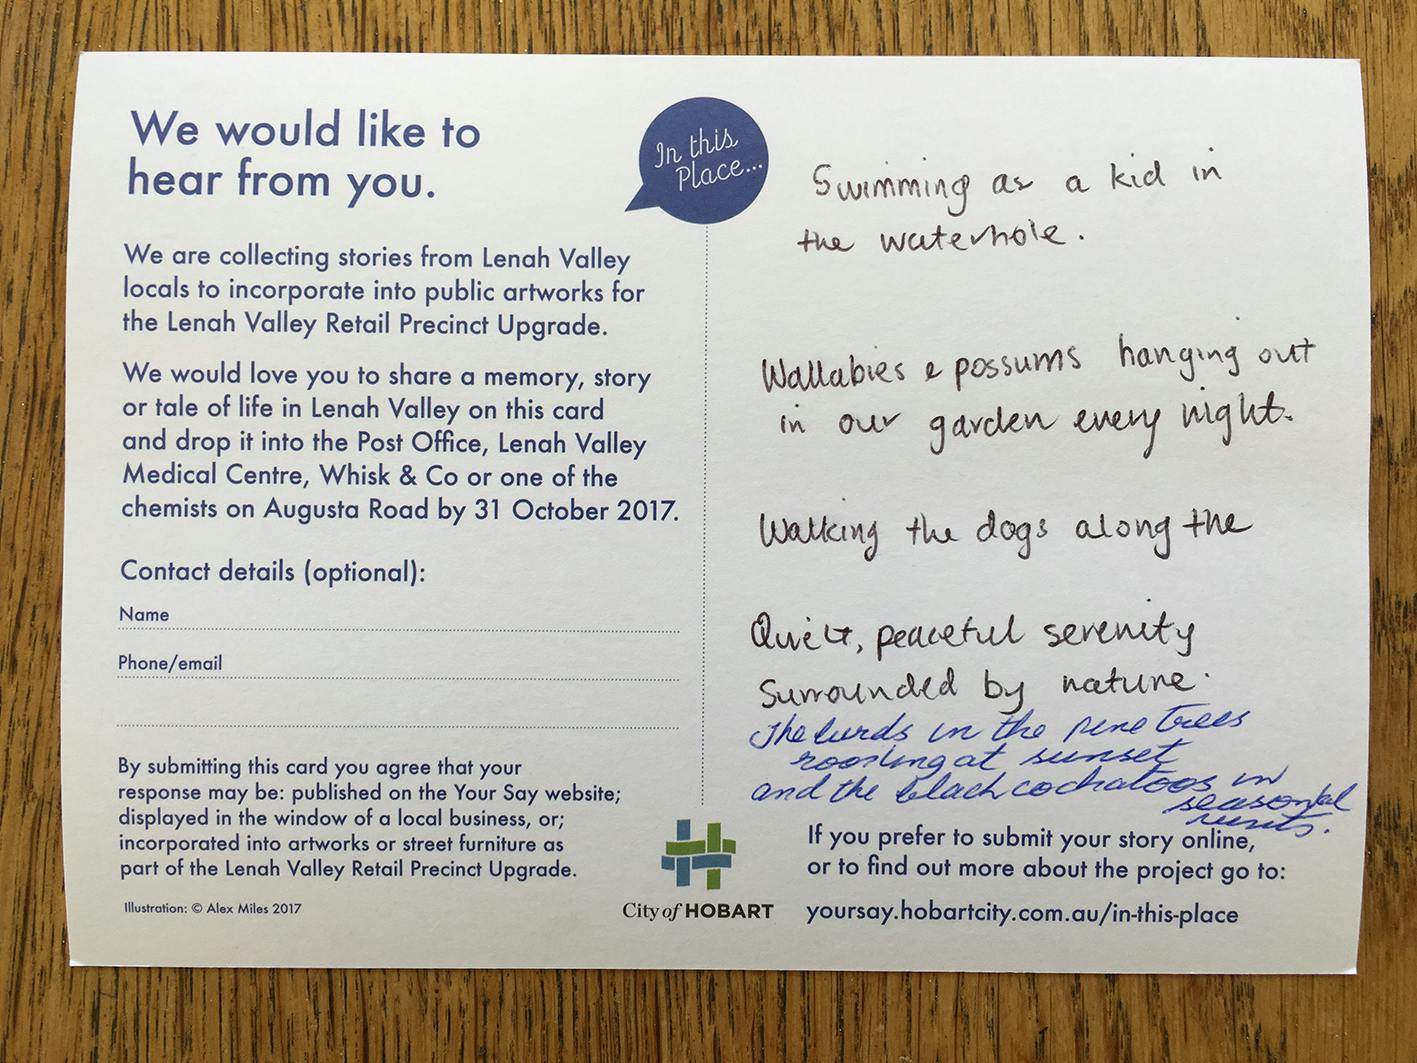 We would like to
hear from you.
We are collecting stories from Lenah Valley
locals to incorporate into public artworks for
the Lenah Valley Retail Precinct Upgrade.
We would love you to share a memory, story
or tale of life in Lenah Valley on this card
and drop it into the Post Office, Lenah Valley
Medical Centre, Whisk & Co or one of the
chemists on Augusta Road by 31 October 2017.
Contact details (optional):
Name
Phone/email
By submitting this card you agree that your
response may be: published on the Your Say website;
displayed in the window of a local business, or;
incorporated into artworks or street furniture as
part of the Lenah Valley Retail Precinct Upgrade.
Illustration: © Alex Miles 2017
In this
Place...
Swimming as a kid in
the waterhole.
Wallabies & possums hanging out
in our garden every night.
Walking the dogs along the
Quiet, peaceful serenity
surrounded by nature.
The birds in the pine trees
roosting at sunset
and the black cockatoos in
seasonal
City of HOBART
If you prefer to submit your story online,
or to find out more about the project go to:
yoursay.hobartcity.com.au/in-this-place